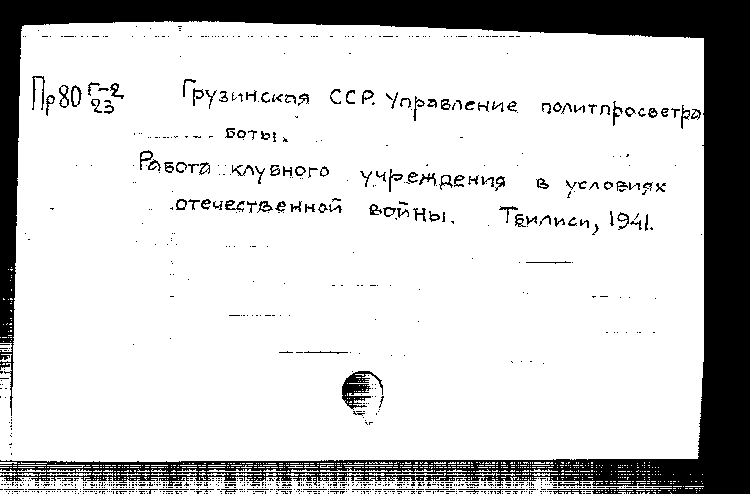 Пр80 Г-2/23 Грузинская ССР. Управление политпросветра-
боты.
Работа клубного учреждения в условиях
отечественной войны. Тбилиси, 1941.